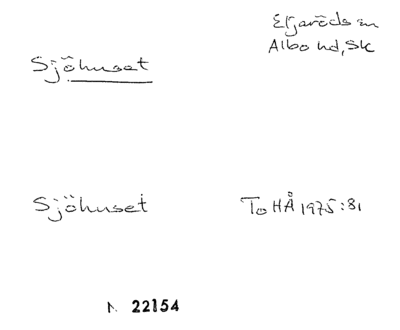 Eljaröds sn
Albo hd, Sk
Sjöhuset
Sjöhuset
To HÅ 1975:81
22154